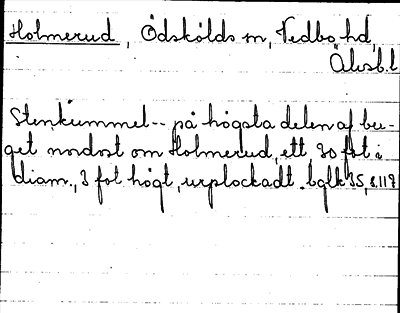 Holmerud, Ödskölds sn, Vedbo hd,
Älvsb. l
Stenkummel -- på högsta delen af ber-
get nordost om Holmerud, ett 30 fot i
diam., 3 fot högt, urplockadt. bglk 35, s. 117